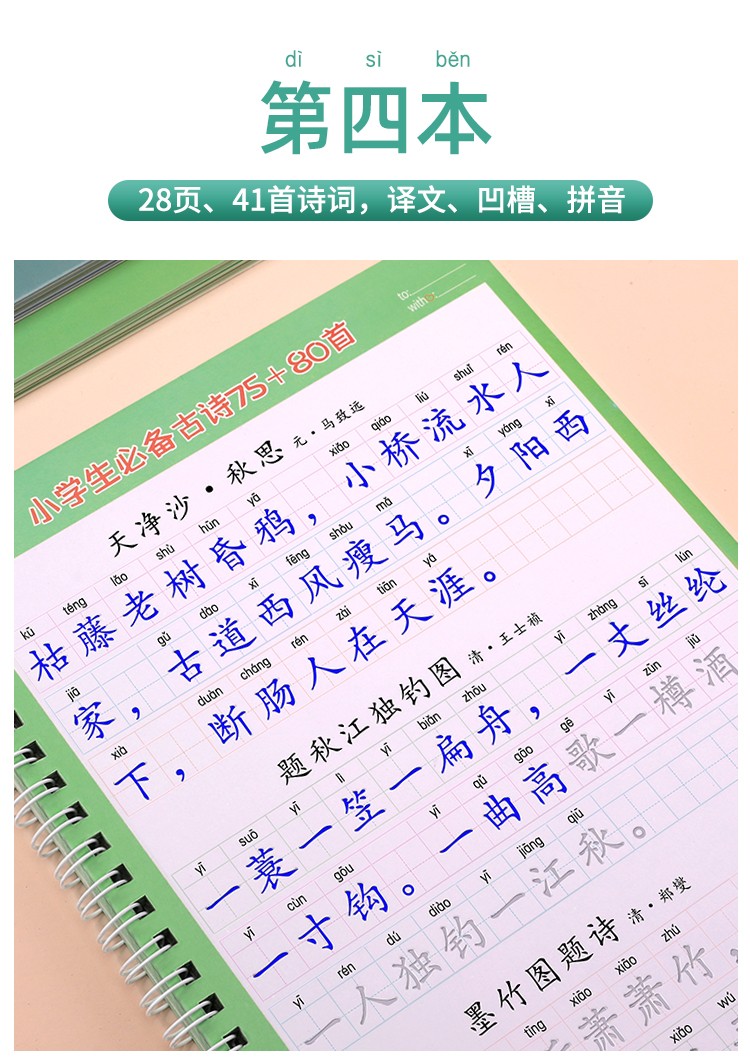 dì sì běn
第四本
28页、41首诗词，译文、凹槽、拼音
to:
with
小学生必备古诗75+80首
天净沙·秋思 元·马致远
kū téng lǎo shù hūn yā xiǎo qiáo liú shuǐ rén
枯藤老树昏鸦，小桥流水人
jiā gǔ dào xī fēng shòu mǎ xī yáng xī
家，古道西风瘦马。夕阳西
xià duàn cháng rén zài tiān yá
下，断肠人在天涯。
题秋江独钓图 清·王士祯
yī suō yī lì yī biǎn zhōu yī zhàng sī lún
一蓑一笠一扁舟，一丈丝纶
yī cùn gōu yī qǔ gāo gē yī zūn jiǔ
一寸钩。一曲高歌一樽酒
yī rén dú diào yī jiāng qiū
一人独钓一江秋。
墨竹图题诗 清·郑燮
tīng xiāo xiāo zhú
萧萧竹，
wú